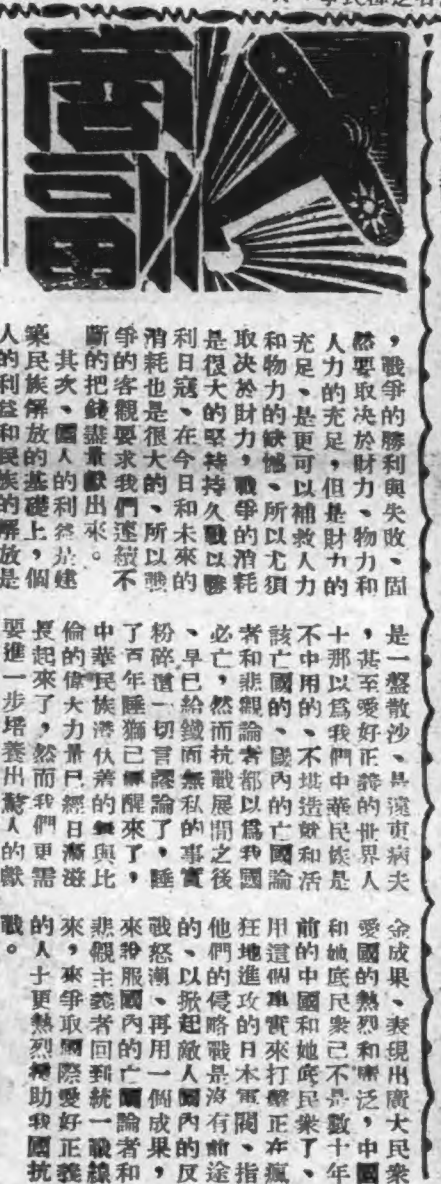 商副
，戰爭的勝利與失敗、固
然要取决於財力、物力和
人力的充足，但是財力的
充足、是更可以補救人力
和物力的缺憾、所以尤須
取决於財力，戰爭的消耗
是很大的堅持持久戰以勝
利日寇、在今日和未來的
消耗也是很大的、所以戰
爭的客觀要求我們連續不
斷的把錢盡量獻出來。
其次、國人的利益是建
築民族解放的基礎上，個
人的利益和民族的解放是
是一盤散沙、是遠東病夫
，甚至愛好正義的世界人
十那以爲我們中華民族是
不中用的、不堪造就和活
該亡國的、國內的亡國論
者和悲觀論者都以爲我國
必亡，然而抗戰展開之後
、早已給鐵面無私的事實
粉碎這一切言謬論了，睡
了百年睡獅已經醒來了，
中華民族潛伏着的無與比
倫的偉大力量已經日漸滋
長起來了，然而我們更需
要進一步培養出驚人的獻
金成果、表現出廣大民衆
愛國的熱烈和廣泛，中國
和她底民衆已不是數十年
前的中國和她底民衆了、
用這個事實來打擊正在瘋
狂地進攻的日本軍閥、指
他們的侵略戰是沒有前途
的、以掀起敵人國內的反
戰怒潮、再用一個成果，
來說服國內的亡國論者和
悲觀主義者回到統一戰線
來，來爭取國際愛好正義
的人士更熱烈援助我國抗
戰。